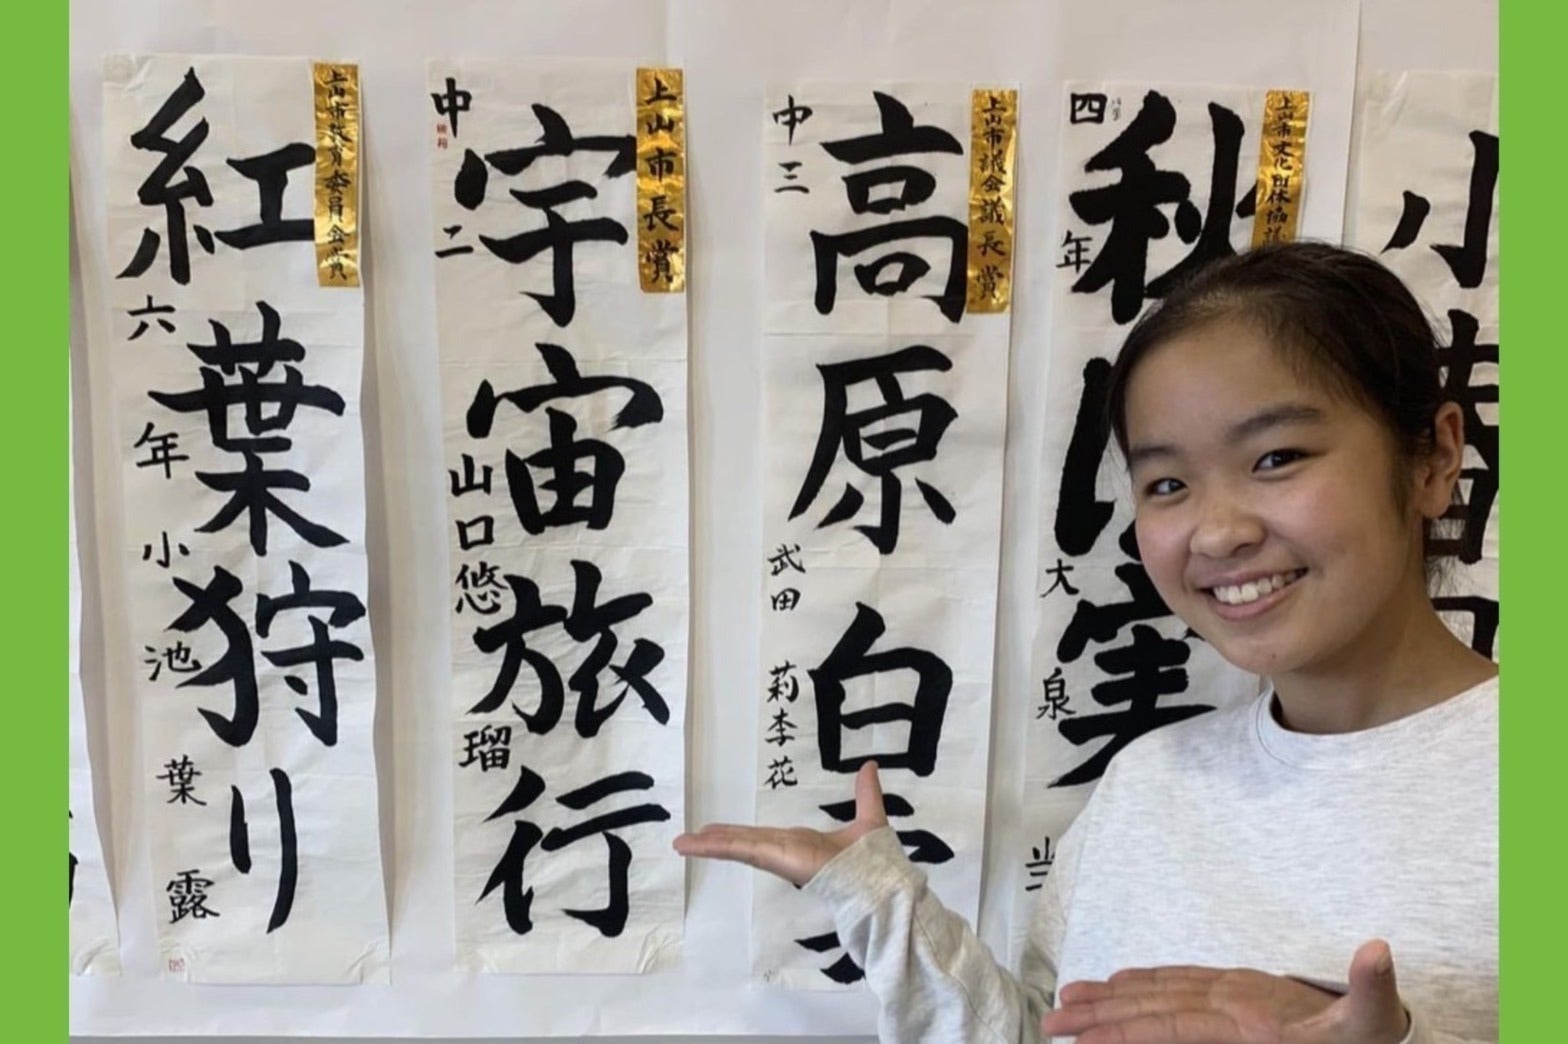 小
上山市文化団体協議
秋
実
四年 大泉
上山市議会議長賞
高原白
中三 武田 莉李花
上山市長賞
宇宙旅行
中二 山口悠瑠
上山市教育委員会賞
紅葉狩り
六年 小池 葉露